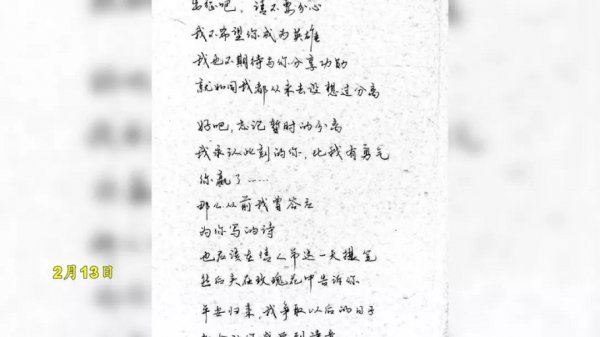 出征吧，请不要分心
我不希望你成为英雄
我也不期待与你分享功勋
就如同我都从来去没想过分离
好吧，忘记暂时的分离
我承认此刻的你，比我有勇气
你赢了……
那么从前我曾答应
为你写的诗
也应该在情人节这一天提笔
然后夹在玫瑰花中告诉你
平安归来，我争取以后的日子
2月13日